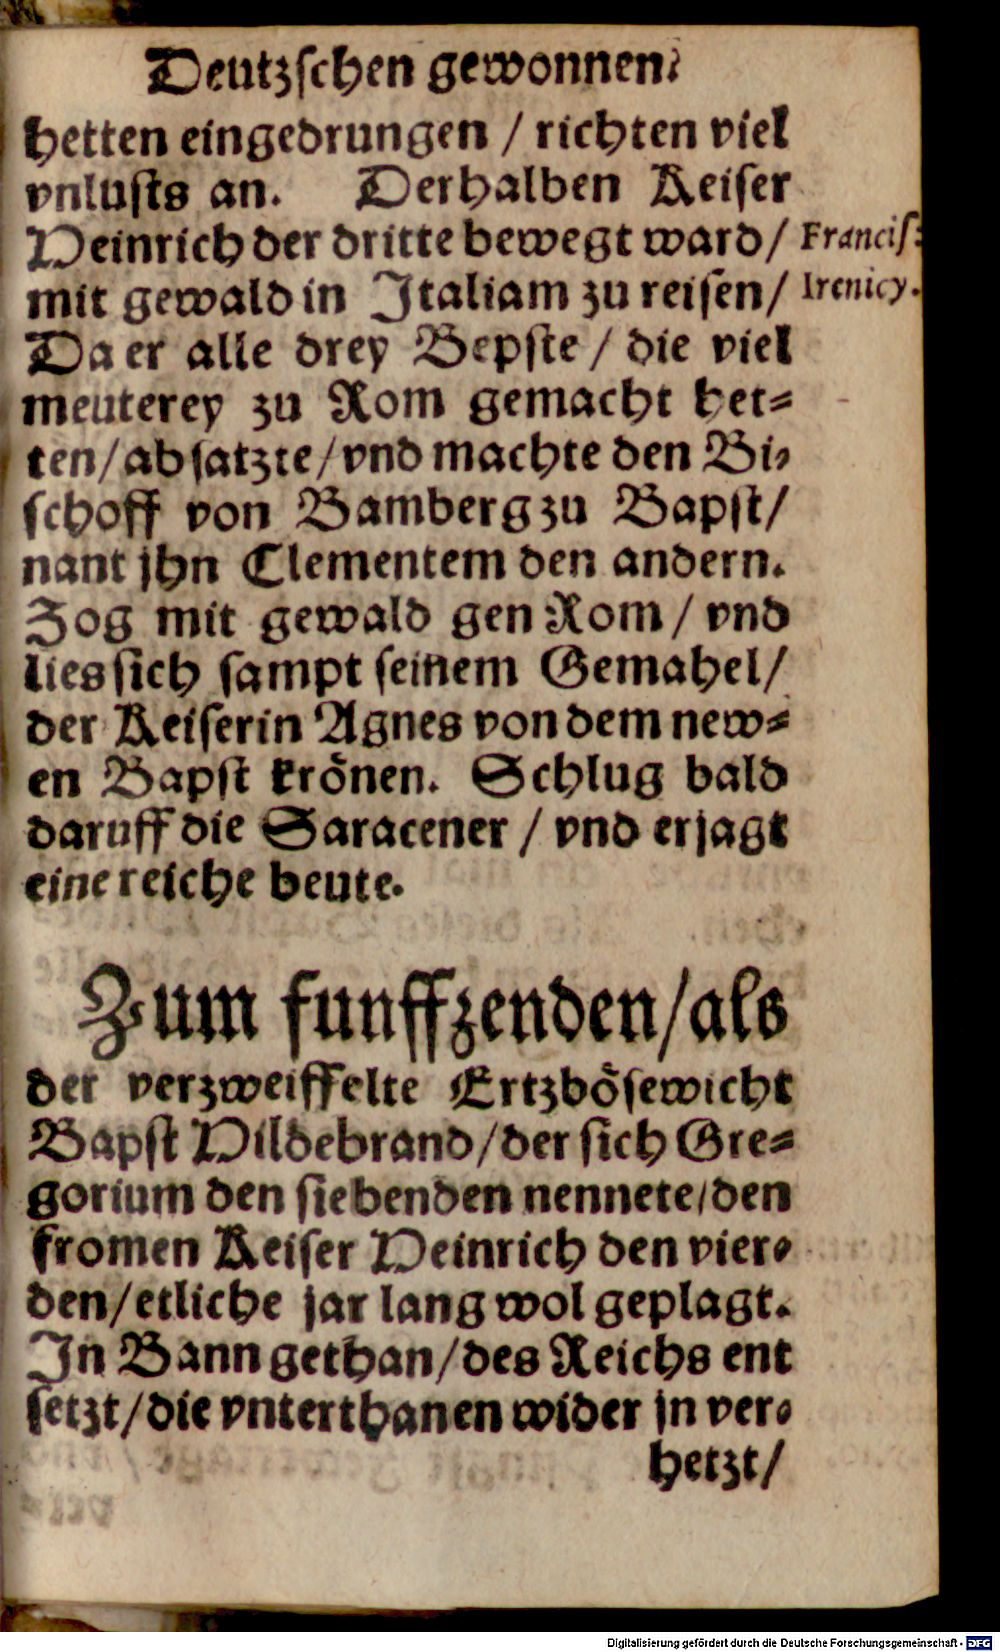 Deutzschen gewonnen.
hetten eingedrungen / richten viel
vnlusts an. Derhalben Keiser
Heinrich der dritte bewegt ward/
Francis:
mit gewald in Italiam zu reisen/
Irenicy.
Da er alle drey Bepste / die viel
meuterey zu Rom gemacht het=
ten/absatzte/vnd machte den Bi=
schoff von Bamberg zu Bapst/
nant jhn Clementem den andern.
Zog mit gewald gen Rom / vnd
lies sich sampt seinem Gemahel/
der Keiserin Agnes von dem new=
en Bapst krönen. Schlug bald
daruff die Saracener / vnd erjagt
eine reiche beute.
Zum funffzenden/als
der verzweiffelte Ertzbösewicht
Bapst Hildebrand/der sich Gre=
gorium den siebenden nennete/den
fromen Keiser Heinrich den vier=
den/etliche jar lang wol geplagt.
In Bann gethan/des Reichs ent
setzt/die vnterthanen wider jn ver=
hetzt/
Digitalisierung gefördert durch die Deutsche Forschungsgemeinschaft - DFG